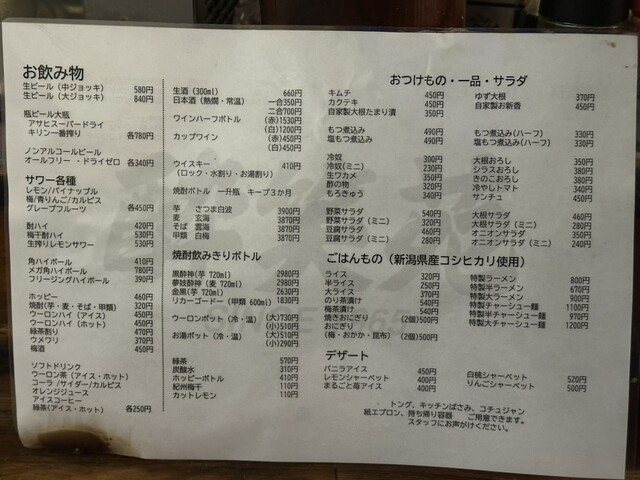 お飲み物
生ビール（中ジョッキ） 580円
生ビール（大ジョッキ） 840円
瓶ビール大瓶
アサヒスーパードライ
キリン一番搾り 各780円
ノンアルコールビール
オールフリー・ドライゼロ 各340円
サワー各種
レモン/パイナップル
梅/青りんご/カルピス
グレープフルーツ 各450円
酎ハイ 420円
梅干酎ハイ 530円
生搾りレモンサワー 530円
角ハイボール 410円
メガ角ハイボール 780円
フリージングハイボール 390円
ホッピー 460円
焼酎（芋・麦・そば・甲類） 320円
ウーロンハイ（アイス） 450円
ウーロンハイ（ホット） 450円
緑茶割り 470円
ウメワリ 370円
梅酒 450円
ソフトドリンク
ウーロン茶（アイス・ホット）
コーラ/サイダー/カルピス
オレンジジュース
アイスコーヒー
緑茶（アイス・ホット） 各250円
生酒（300ml） 660円
日本酒（熱燗・常温） 一合350円
二合700円
ワインハーフボトル （赤）1530円
（白）1200円
カップワイン （赤）450円
（白）450円
ウイスキー 410円
（ロック・水割り・お湯割り）
焼酎ボトル 一升瓶 キープ３か月
芋 さつま白波 3900円
麦 玄海 3870円
そば 雲海 3870円
甲類 白梅 3870円
焼酎飲みきりボトル
黒酔神（芋 720ml） 2980円
夢妓酔神（麦 720ml） 2980円
金黒（芋 720ml） 2630円
リカーゴードー（甲類 600ml） 1830円
ウーロンポット（冷・温） （大）730円
（小）510円
お湯ポット（冷・温） （大）510円
（小）290円
緑茶 570円
炭酸水 310円
ホッピーボトル 410円
紀州梅干 110円
カットレモン 110円
おつけもの・一品・サラダ
キムチ 450円
カクテキ 450円
自家製大根たまり漬 350円
もつ煮込み 490円
塩もつ煮込み 490円
冷奴 300円
冷奴（ミニ） 230円
生ワカメ 350円
酢の物 320円
もろきゅう 340円
野菜サラダ 540円
野菜サラダ（ミニ） 320円
豆腐サラダ 540円
豆腐サラダ（ミニ） 320円
ゆず大根 370円
自家製お新香 450円
もつ煮込み（ハーフ） 330円
塩もつ煮込み（ハーフ） 330円
大根おろし 350円
シラスおろし 380円
きのこおろし 350円
冷やしトマト 340円
サンチュ 450円
大根サラダ 460円
大根サラダ（ミニ） 280円
オニオンサラダ 350円
オニオンサラダ（ミニ） 240円
ごはんもの（新潟県産コシヒカリ使用）
ライス 320円
半ライス 270円
大ライス 370円
のり茶漬け 540円
梅茶漬け 540円
焼きおにぎり （2個）500円
おにぎり
（梅・おかか・昆布） （2個）500円
特製ラーメン 800円
特製半ラーメン 670円
特製大ラーメン 900円
特製チャーシュー麺 1100円
特製半チャーシュー麺 970円
特製大チャーシュー麺 1200円
デザート
バニラアイス 450円
レモンシャーベット 400円
まるごと苺アイス 400円
白桃シャーベット 520円
りんごシャーベット 500円
トング、キッチンばさみ、コチュジャン
紙エプロン、持ち帰り容器 ご用意できます。
スタッフにお声がけください。